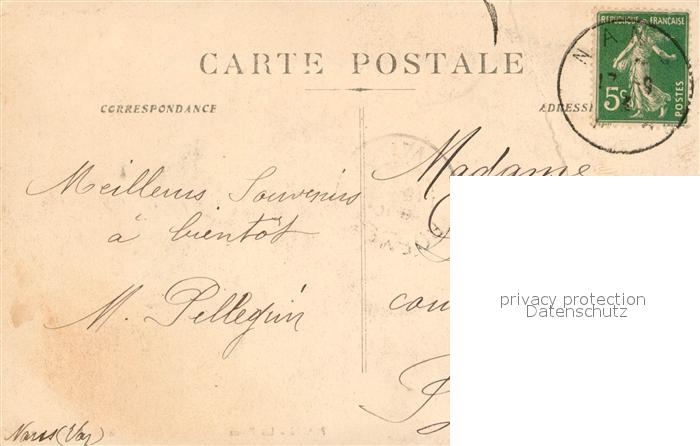 CARTE POSTALE
CORRESPONDANCE
ADRESSE
RÉPUBLIQUE FRANÇAISE
5c
POSTES
NAN
Meilleurs Souvenirs
à bientôt
M. Pellegrin
Madame
privacy protection
Datenschutz
Nans (Var)